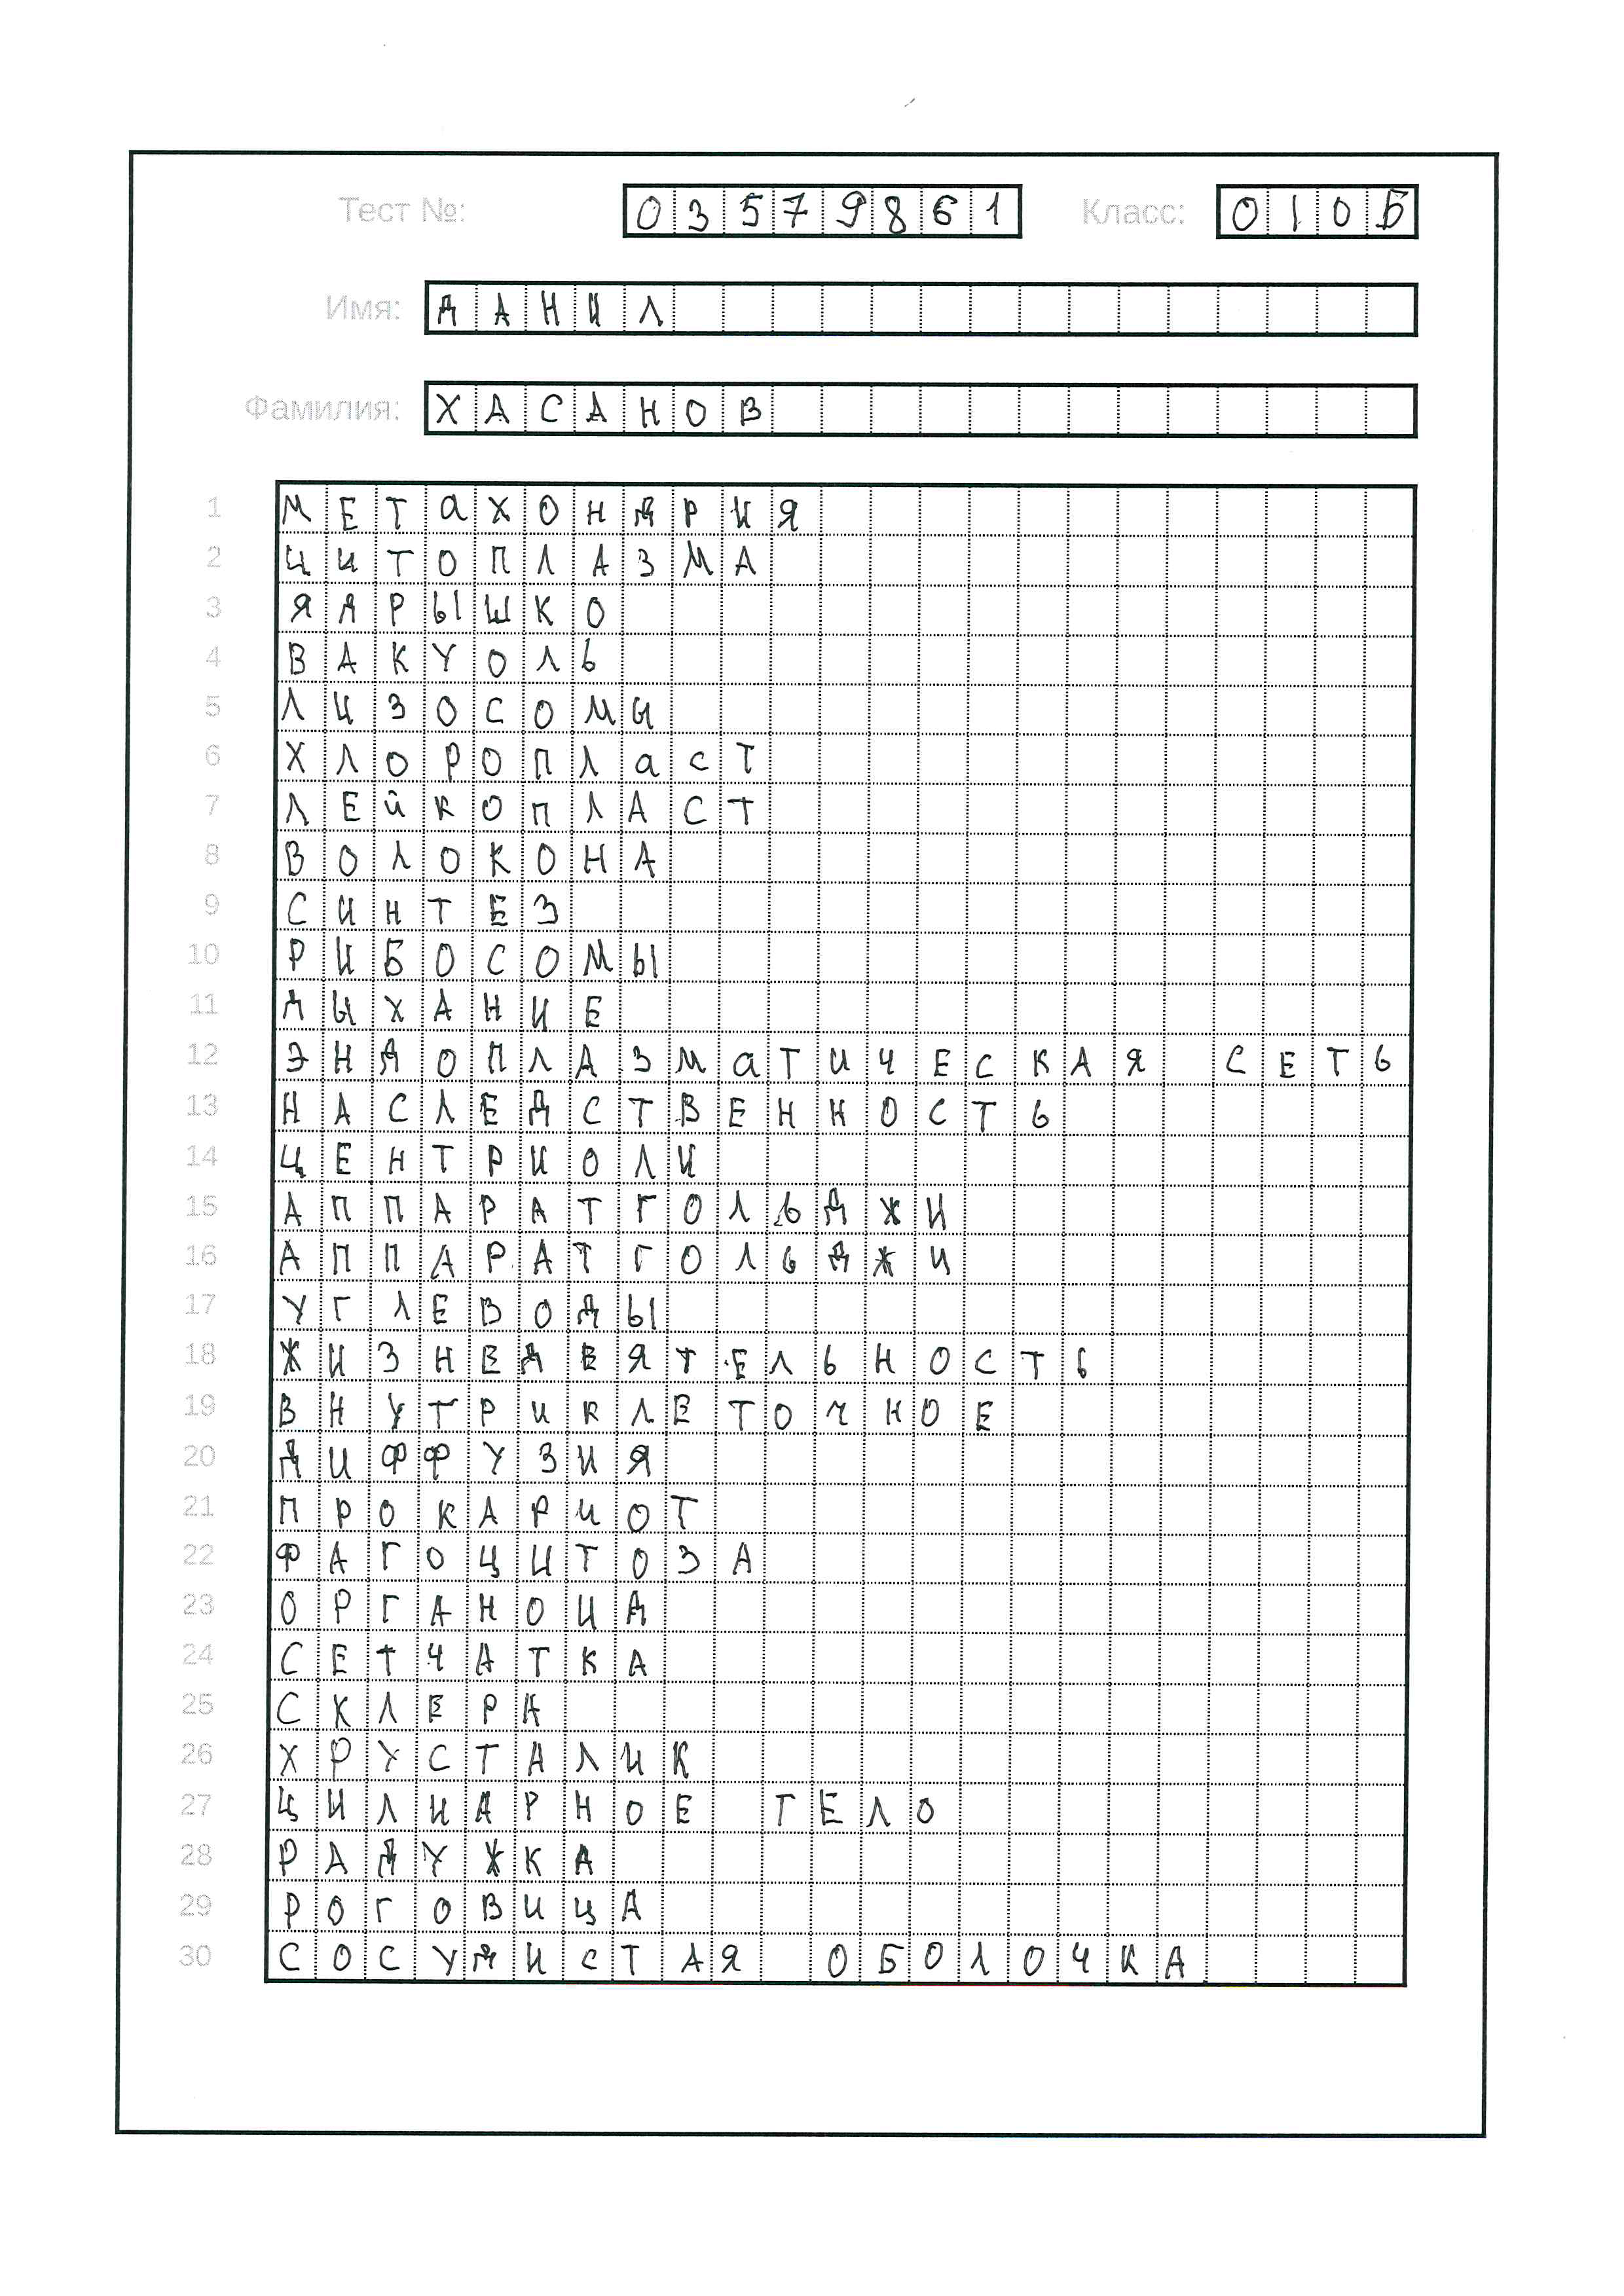 Тест №: 03579861 Класс: 010Б
Имя: ДАНИЛ
Фамилия: ХАСАНОВ
1 МЕТАХОНДРИЯ
2 ЦИТОПЛАЗМА
3 ЯДРЫШКО
4 ВАКУОЛЬ
5 ЛИЗОСОМЫ
6 ХЛОРОПЛАСТ
7 ЛЕЙКОПЛАСТ
8 ВОЛОКОНА
9 СИНТЕЗ
10 РИБОСОМЫ
11 ДЫХАНИЕ
12 ЭНДОПЛАЗМАТИЧЕСКАЯ СЕТЬ
13 НАСЛЕДСТВЕННОСТЬ
14 ЦЕНТРИОЛИ
15 АППАРАТГОЛЬДЖИ
16 АППАРАТГОЛЬДЖИ
17 УГЛЕВОДЫ
18 ЖИЗНЕДЕЯТЕЛЬНОСТЬ
19 ВНУТРИКЛЕТОЧНОЕ
20 ДИФФУЗИЯ
21 ПРОКАРИОТ
22 ФАГОЦИТОЗА
23 ОРГАНОИД
24 СЕТЧАТКА
25 СКЛЕРА
26 ХРУСТАЛИК
27 ЦИЛИАРНОЕ ТЕЛО
28 РАДУЖКА
29 РОГОВИЦА
30 СОСУДИСТАЯ ОБОЛОЧКА